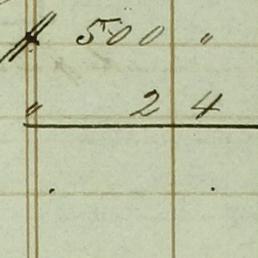 500 "
" 2 4